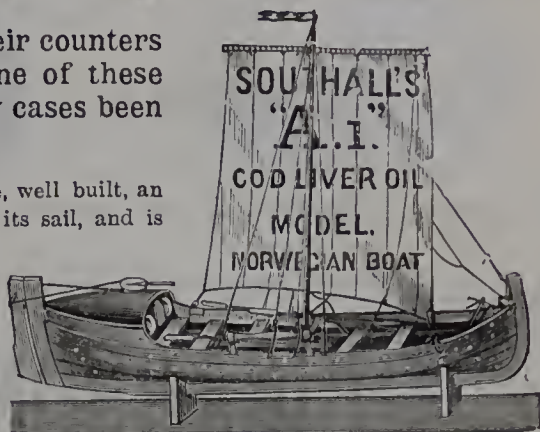 eir counters
ne of these
cases been
, well built, an
its sail, and is
SOUTHALL'S
"A.1."
COD LIVER OIL
MODEL.
NORWEGIAN BOAT